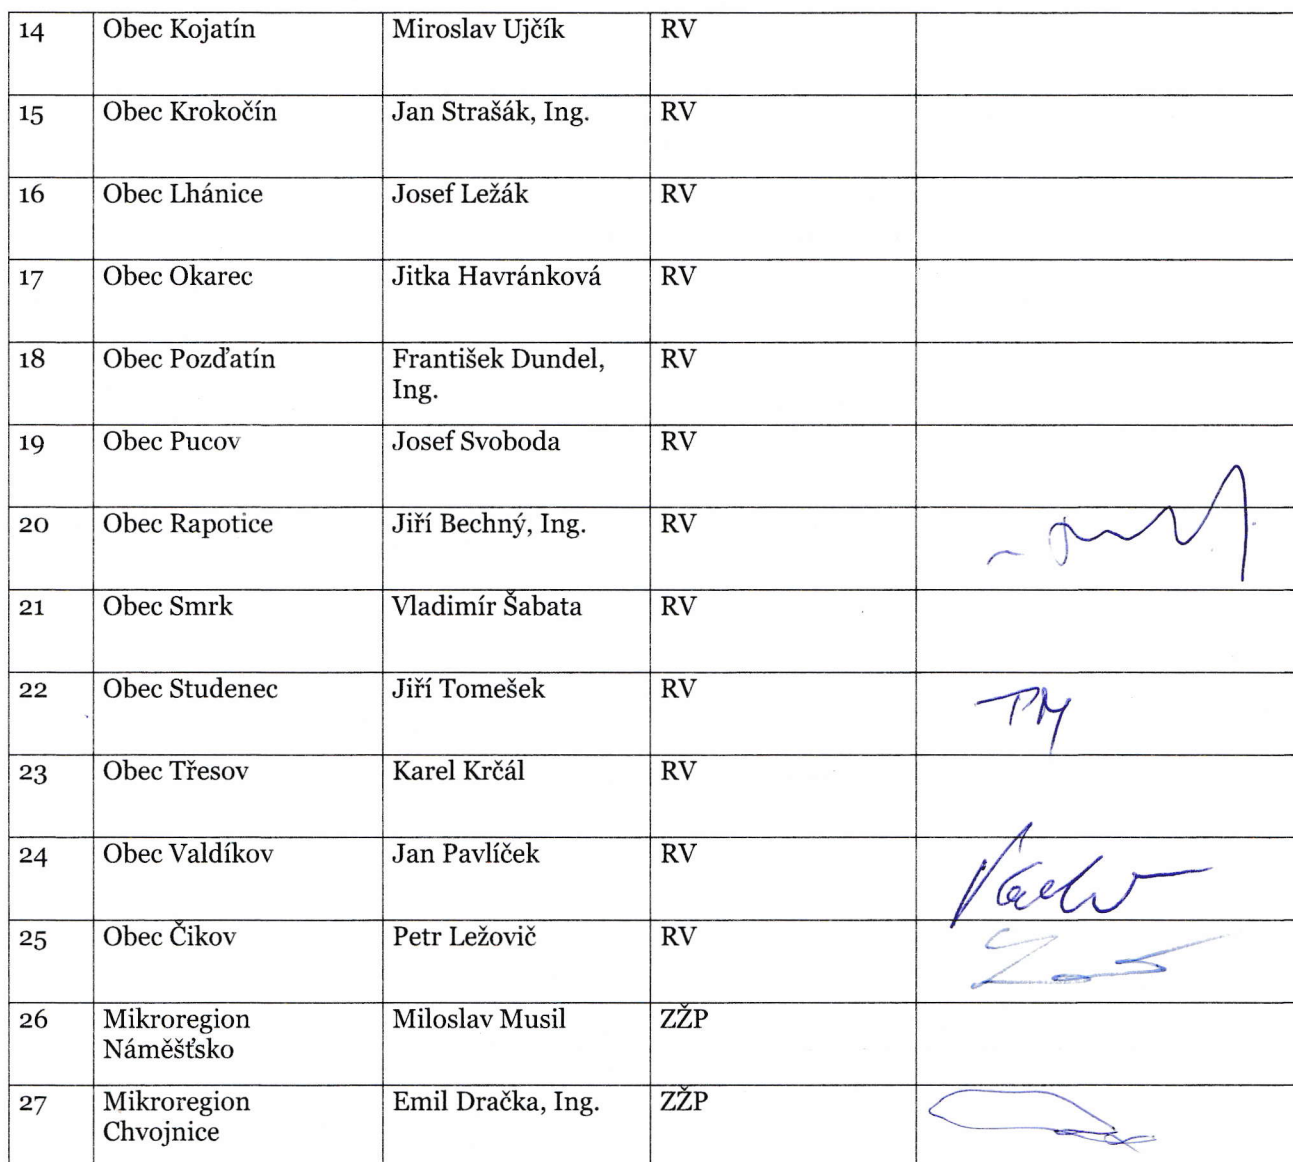 14 Obec Kojatín Miroslav Ujčík RV
15 Obec Krokočín Jan Strašák, Ing. RV
16 Obec Lhánice Josef Ležák RV
17 Obec Okarec Jitka Havránková RV
18 Obec Pozďatín František Dundel, RV
Ing.
19 Obec Pucov Josef Svoboda RV
20 Obec Rapotice Jiří Bechný, Ing. RV
21 Obec Smrk Vladimír Šabata RV
22 Obec Studenec Jiří Tomešek RV
23 Obec Třesov Karel Krčál RV
24 Obec Valdíkov Jan Pavlíček RV
25 Obec Čikov Petr Ležovič RV
26 Mikroregion Miloslav Musil ZŽP
Náměšťsko
27 Mikroregion Emil Dračka, Ing. ZŽP
Chvojnice